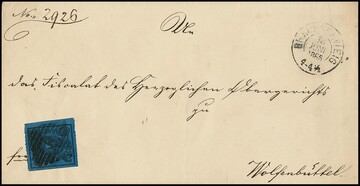 Nro. 2926
An
das Fiscalat des Herzoglichen Obergerichts
zu
Wolfenbüttel.
BRAUNSCHWEIG
JUNI
4-4½